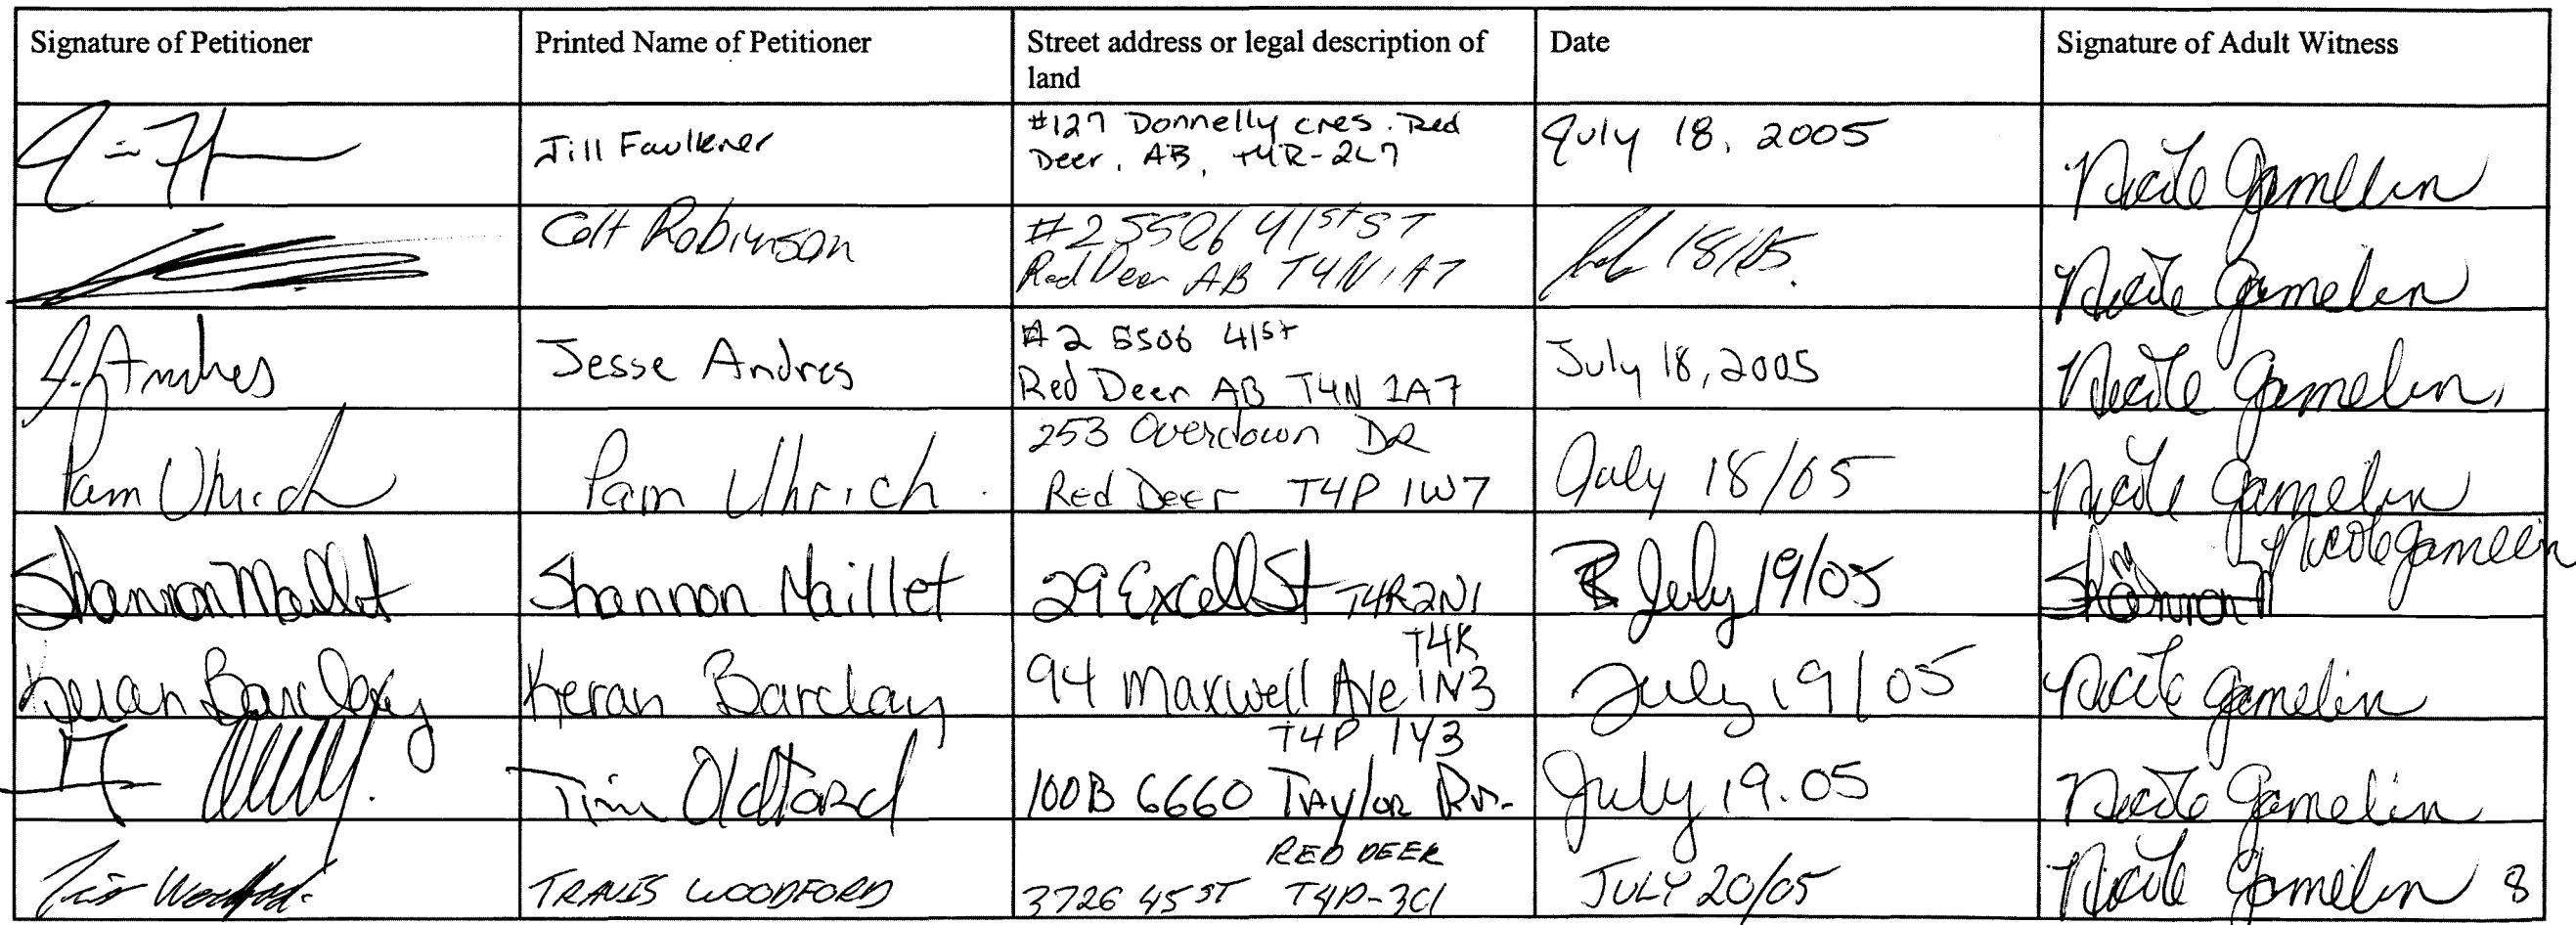 Signature of Petitioner
Printed Name of Petitioner
Street address or legal description of
land
Date
Signature of Adult Witness
Jill Faulkner
#127 Donnelly cres. Red
Deer, AB, T4R-2L7
July 18, 2005
Nicole Gamelin
Colt Robinson
#2 5506 41st ST
Red Deer AB T4N 1A7
18/05.
Nicole Gamelin
J. Andres
Jesse Andres
#2 5506 41st
Red Deer AB T4N 1A7
July 18, 2005
Nicole Gamelin
Pam Uhrich
Pam Uhrich
253 Overdown DR
Red Deer T4P 1W7
July 18/05
Nicole Gamelin
Shannon Maillet
Shannon Maillet
29 Excell St T4R2N1
July 19/05
Shannon
Nicole Gamelin
Keran Barclay
Keran Barclay
T4R
94 Maxwell Ave 1N3
July 19/05
Nicole Gamelin
Tim Oldford
T4P 1Y3
100B 6660 Taylor Dr.
July 19.05
Nicole Gamelin
Woodford
TRAVIS WOODFORD
RED DEER
3726 45 ST T4P-3C1
JULY 20/05
Nicole Gamelin 8